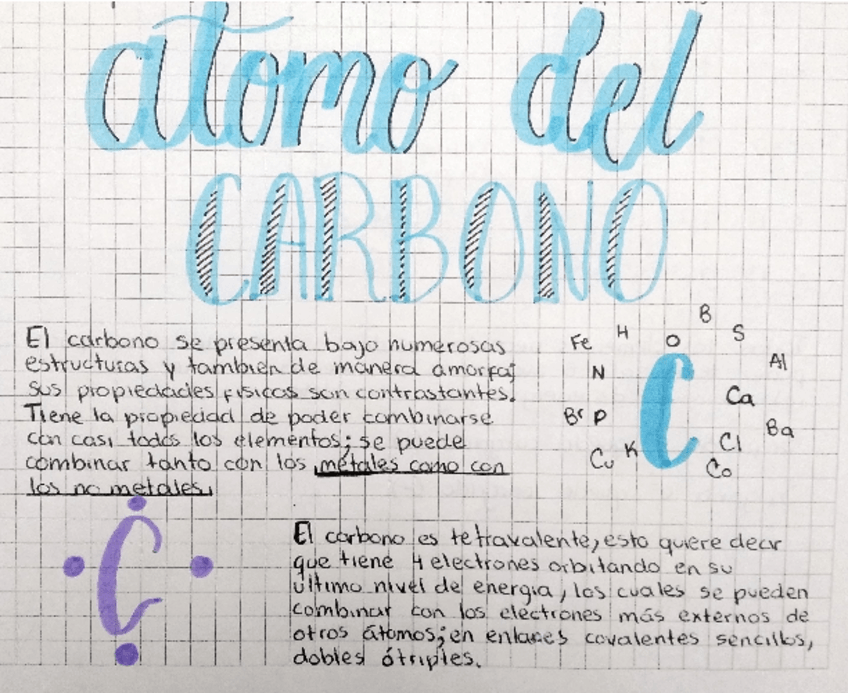 átomo del
CARBONO
El carbono se presenta bajo numerosas
estructuras y tambien de manera amorfa;
sus propiedades físicas son contrastantes.
Tiene la propiedad de poder combinarse
con casi todos los elementos; se puede
combinar tanto con los métales como con
los no metales.
B
Fe H O S
N Al
C Ca
Br P Ba
Cu K Cl
Co
C
El carbono es tetravalente, esto quiere decir
que tiene 4 electrones orbitando en su
último nivel de energía, los cuales se pueden
combinar con los electrones más externos de
otros átomos; en enlaces covalentes sencillos,
dobles ó triples.